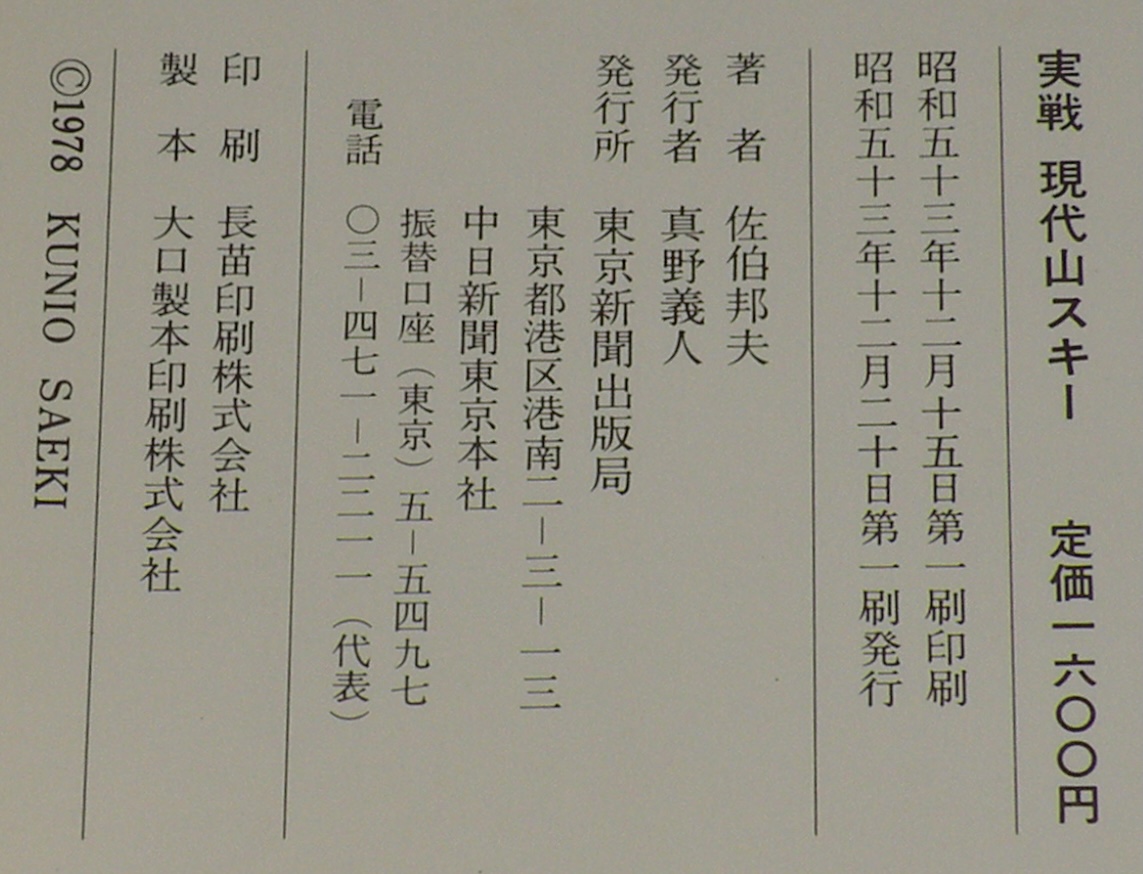 実戦 現代山スキー 定価一六〇〇円
昭和五十三年十二月十五日第一刷印刷
昭和五十三年十二月二十日第一刷発行
著者 佐伯邦夫
発行者 真野義人
発行所 東京新聞出版局
東京都港区港南二－三－一三
中日新聞東京本社
振替口座（東京）五－五四九七
電話 〇三－四七一－二二一一（代表）
印刷 長苗印刷株式会社
製本 大口製本印刷株式会社
©1978 KUNIO SAEKI